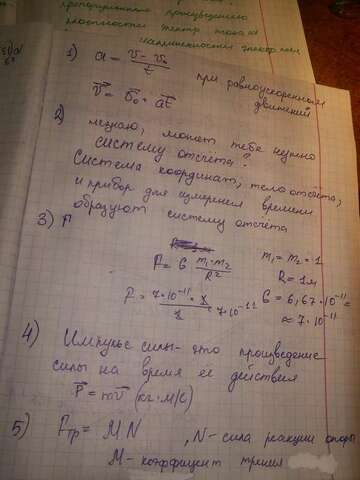 пропорциональна произведению
плотности
напряженности
1) a = (v - v₀)/t при равноускоренном
движении
v⃗ = v⃗₀ + a⃗t
2) незнаю, может тебе нужно
систему отсчёта?
Система координат, тело отсчёта,
и прибор для измерения времени
образуют систему отсчёта
3) F
F = G (m₁·m₂)/R² m₁ = m₂ = 1
R = 1м
F = (7·10⁻¹¹·1)/1 = 7·10⁻¹¹ G = 6,67·10⁻¹¹ ≈ 7·10⁻¹¹
4) Импульс силы - это произведение
силы на время её действия
P⃗ = mv⃗ (кг·м/с)
5) Fтр = MN , N - сила реакции опоры
M - коэффициент трения